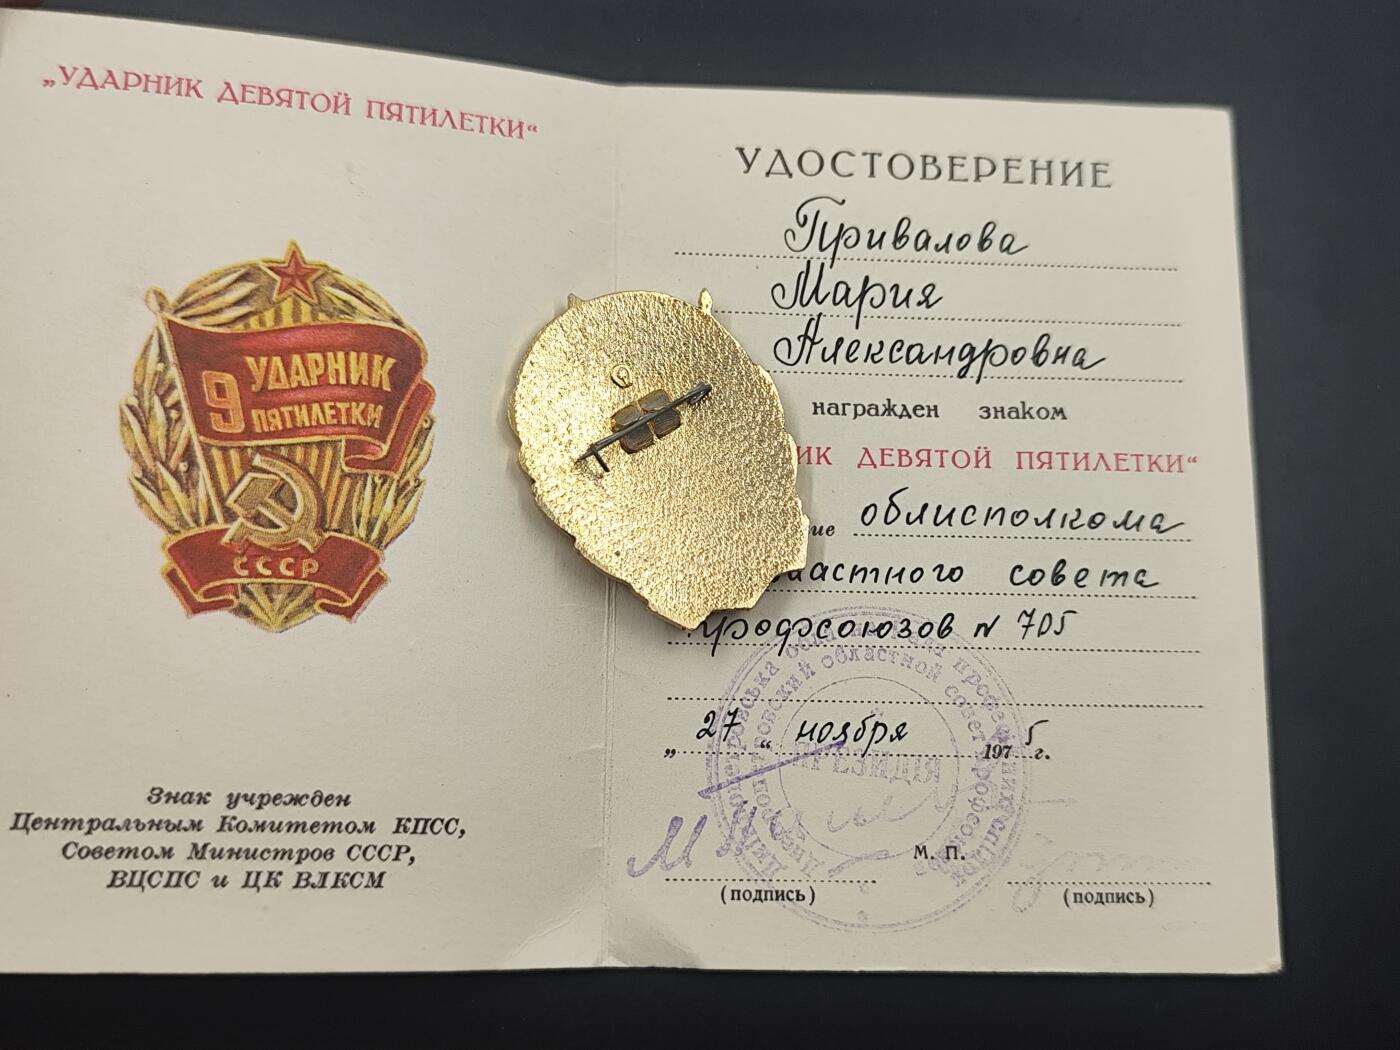 „УДАРНИК ДЕВЯТОЙ ПЯТИЛЕТКИ“
9 УДАРНИК
ПЯТИЛЕТКИ
СССР
Знак учрежден
Центральным Комитетом КПСС,
Советом Министров СССР,
ВЦСПС и ЦК ВЛКСМ
УДОСТОВЕРЕНИЕ
Привалова
Мария
Александровна
награжден знаком
ИК ДЕВЯТОЙ ПЯТИЛЕТКИ“
ие облисполкома
бластного совета
профсоюзов N 705
„27“ ноября 1975 г.
ПРЕЗИДІЯ
М. П.
(подпись) (подпись)